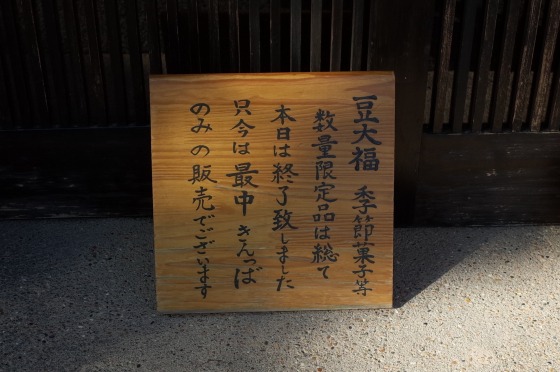 豆大福　季節菓子等
数量限定品は総て
本日は終了致しました
只今は最中きんつば
のみの販売でございます